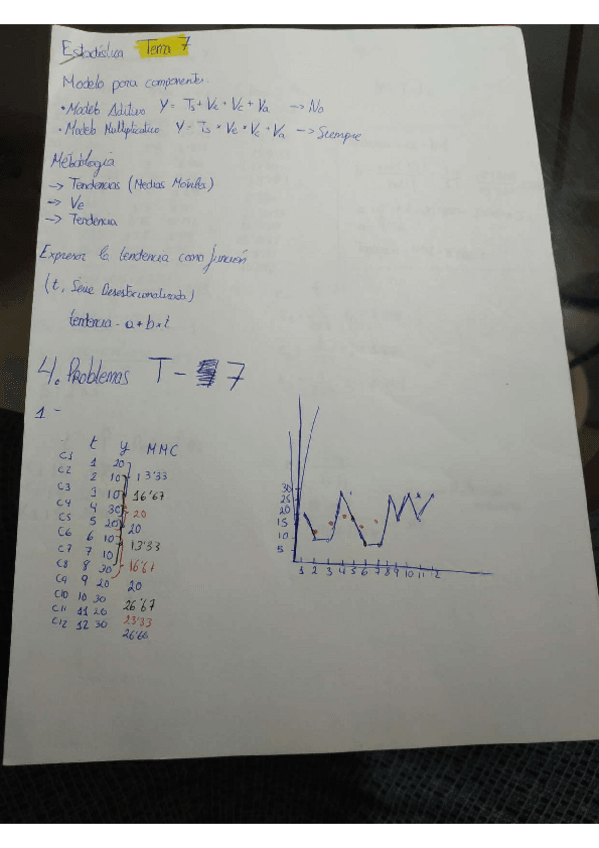 Estadística Tema 7
Modelo para componente
• Modelo Aditivo Y = Ts + Ve + Vc + Va → No
• Modelo Multiplicativo Y = Ts * Ve * Vc * Va → Siempre
Metodologia
→ Tendencias (Medias Móviles)
→ Ve
→ Tendencia
Expresar la tendencia como función
(t, Serie Desestacionalizada)
tendencia = a + b * t
4. Problemas T - 7
1 -
t y MMC
C1 1 20
C2 2 10 13'33
C3 3 10 16'67
C4 4 30 20
C5 5 20 20
C6 6 10 13'33
C7 7 10 16'67
C8 8 30 20
C9 9 20 26'67
C10 10 30 23'33
C11 11 20 26'66
C12 12 30
30
25
20
15
10
5
1 2 3 4 5 6 7 8 9 10 11 12